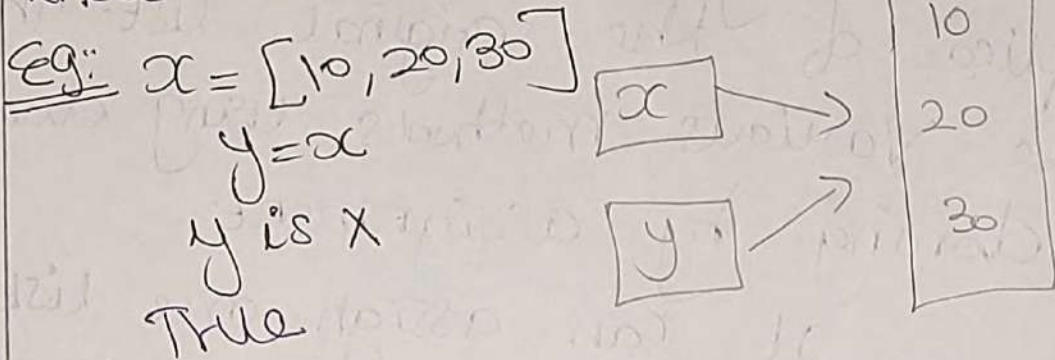 Eg:- x = [10, 20, 30]
y = x
y is x
True
x
y
10
20
30